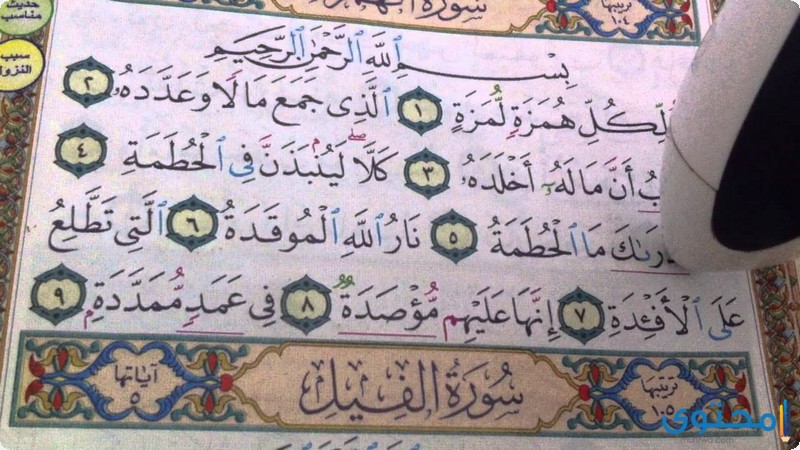 حديث
مناسب
سبب
النزول
سورة الهمزة
ترتيبها
١٠٤
بِسْمِ ٱللَّهِ ٱلرَّحْمَٰنِ ٱلرَّحِيمِ
لِّكُلِّ هُمَزَةٍ لُّمَزَةٍ ١ ٱلَّذِى جَمَعَ مَالًا وَعَدَّدَهُۥ ٢
أَنَّ مَالَهُۥٓ أَخْلَدَهُۥ ٣ كَلَّا ۖ لَيُنۢبَذَنَّ فِى ٱلْحُطَمَةِ ٤
مَا ٱلْحُطَمَةُ ٥ نَارُ ٱللَّهِ ٱلْمُوقَدَةُ ٦ ٱلَّتِى تَطَّلِعُ
عَلَى ٱلْأَفْـِٔدَةِ ٧ إِنَّهَا عَلَيْهِم مُّؤْصَدَةٌ ٨ فِى عَمَدٍ مُّمَدَّدَةٍۭ ٩
ترتيبها
١٠٥
سُورَةُ الْفِيلِ
آياتها
٥
محتوى